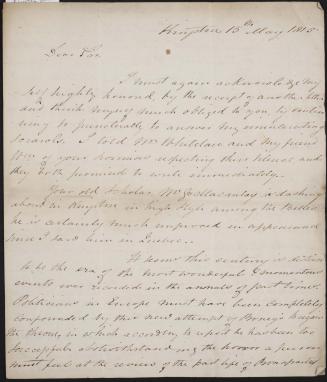 Kingston 15th May 1815
Dear Sir
I must again acknowledge my
self highly honored, by the receipt of another letter
and think myself much obliged to you, by contin
uing so punctually to answer my uninteresting
scrawls. I told Mr Whitelaw and my friend
Wm of your surmises respecting their silence and
they both promised to write immediately.
Your old Scholar, Mr is dashing
about in Kingston in high style among the Belles
he is certainly much improved in appearance
since I saw him in Quebec.
It seems this century is destined
to be the era of the most wonderful & momentous
events ever recorded in the annals of past times.
Politicians in Europe must have been completely
confounded by this new attempt of Boney's to
the throne, in which according to report he has been too
successful notwithstanding the horror a person
must feel at the review of the past life of Bonaparte